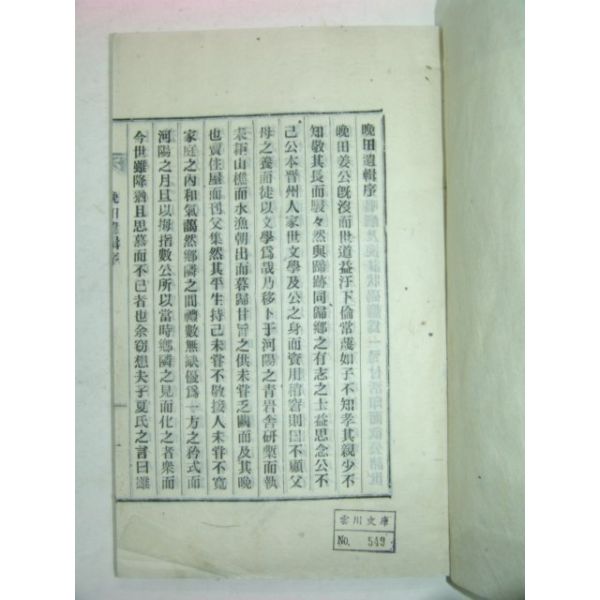 晚田遺輯序
晚田姜公旣沒而世道益汙下倫常蔑如子不知孝其親少不
知敬其長而駸々然與蹄跡同歸鄉之有志之士益思念公不
己公本晋州人家世文學及公之身而資用稍窘則曰不顧父
母之養而徒以文學爲哉乃移卜于河陽之青岩舍研槧而執
耒耜山樵而水漁朝出而暮歸甘旨之供未甞乏闕而及其晚
也賣佳屋而刊父集然其平生持己未甞不敬接人未甞不寬
家庭之內和氣藹然鄉隣之間禮數無缺優爲一方之矜式而
河陽之月且以每指數公所以當時鄉隣之見而化之者衆而
今世雖降猶且思慕而不已者也余窃想夫子夏氏之言曰雖
晚田遺輯序
一
雲川文庫
No. 549